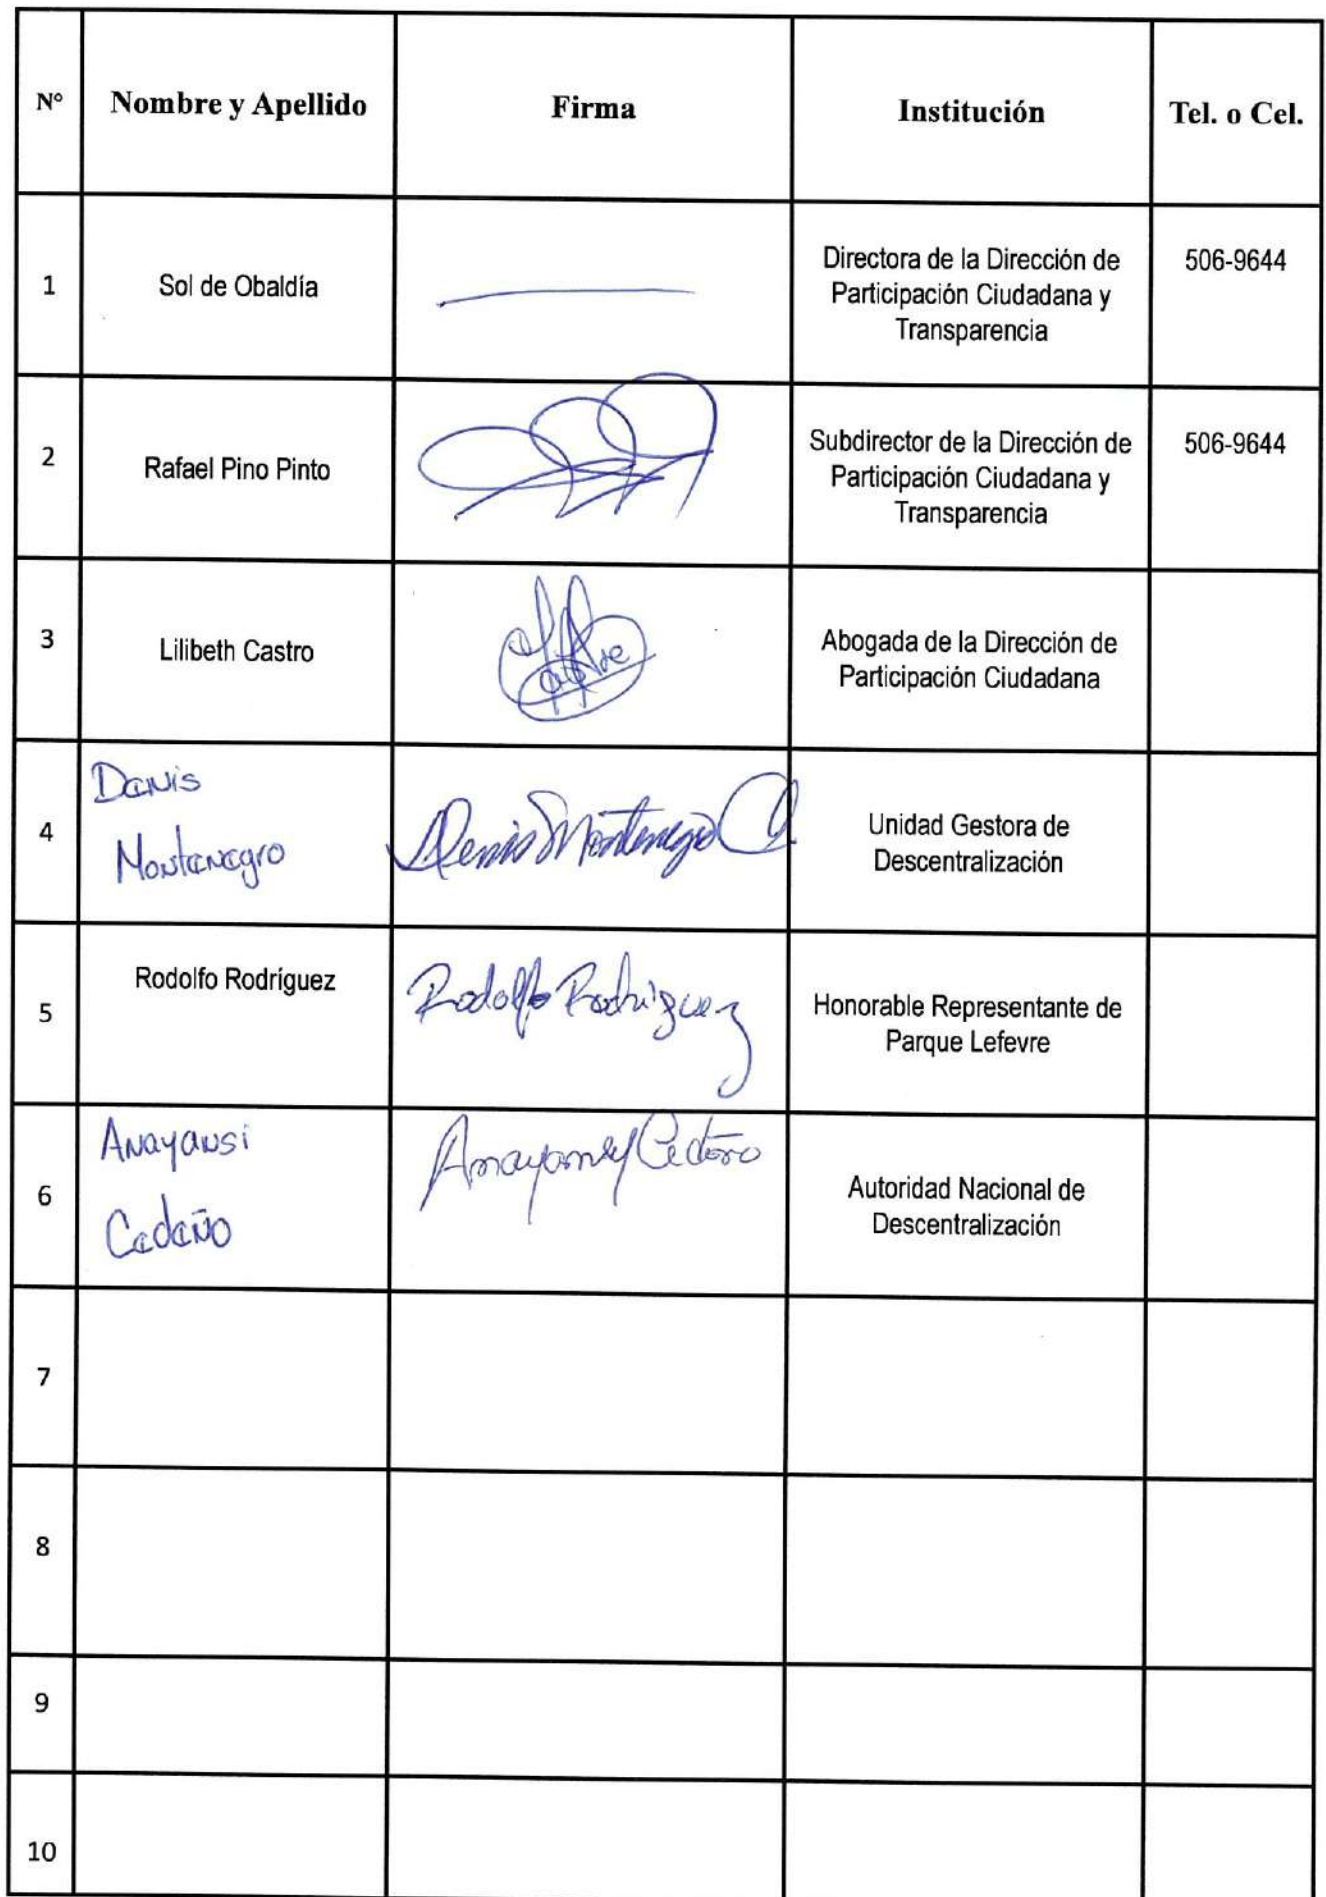 N° Nombre y Apellido Firma Institución Tel. o Cel.
1 Sol de Obaldía Directora de la Dirección de 506-9644
Participación Ciudadana y
Transparencia
2 Rafael Pino Pinto Subdirector de la Dirección de 506-9644
Participación Ciudadana y
Transparencia
3 Lilibeth Castro Abogada de la Dirección de
Participación Ciudadana
4 Denis
Montenegro Denis Montenegro Unidad Gestora de
Descentralización
5 Rodolfo Rodríguez Rodolfo Rodriguez Honorable Representante de
Parque Lefevre
6 Anayansi
Cedeño Anayansy Cedeño Autoridad Nacional de
Descentralización
7
8
9
10